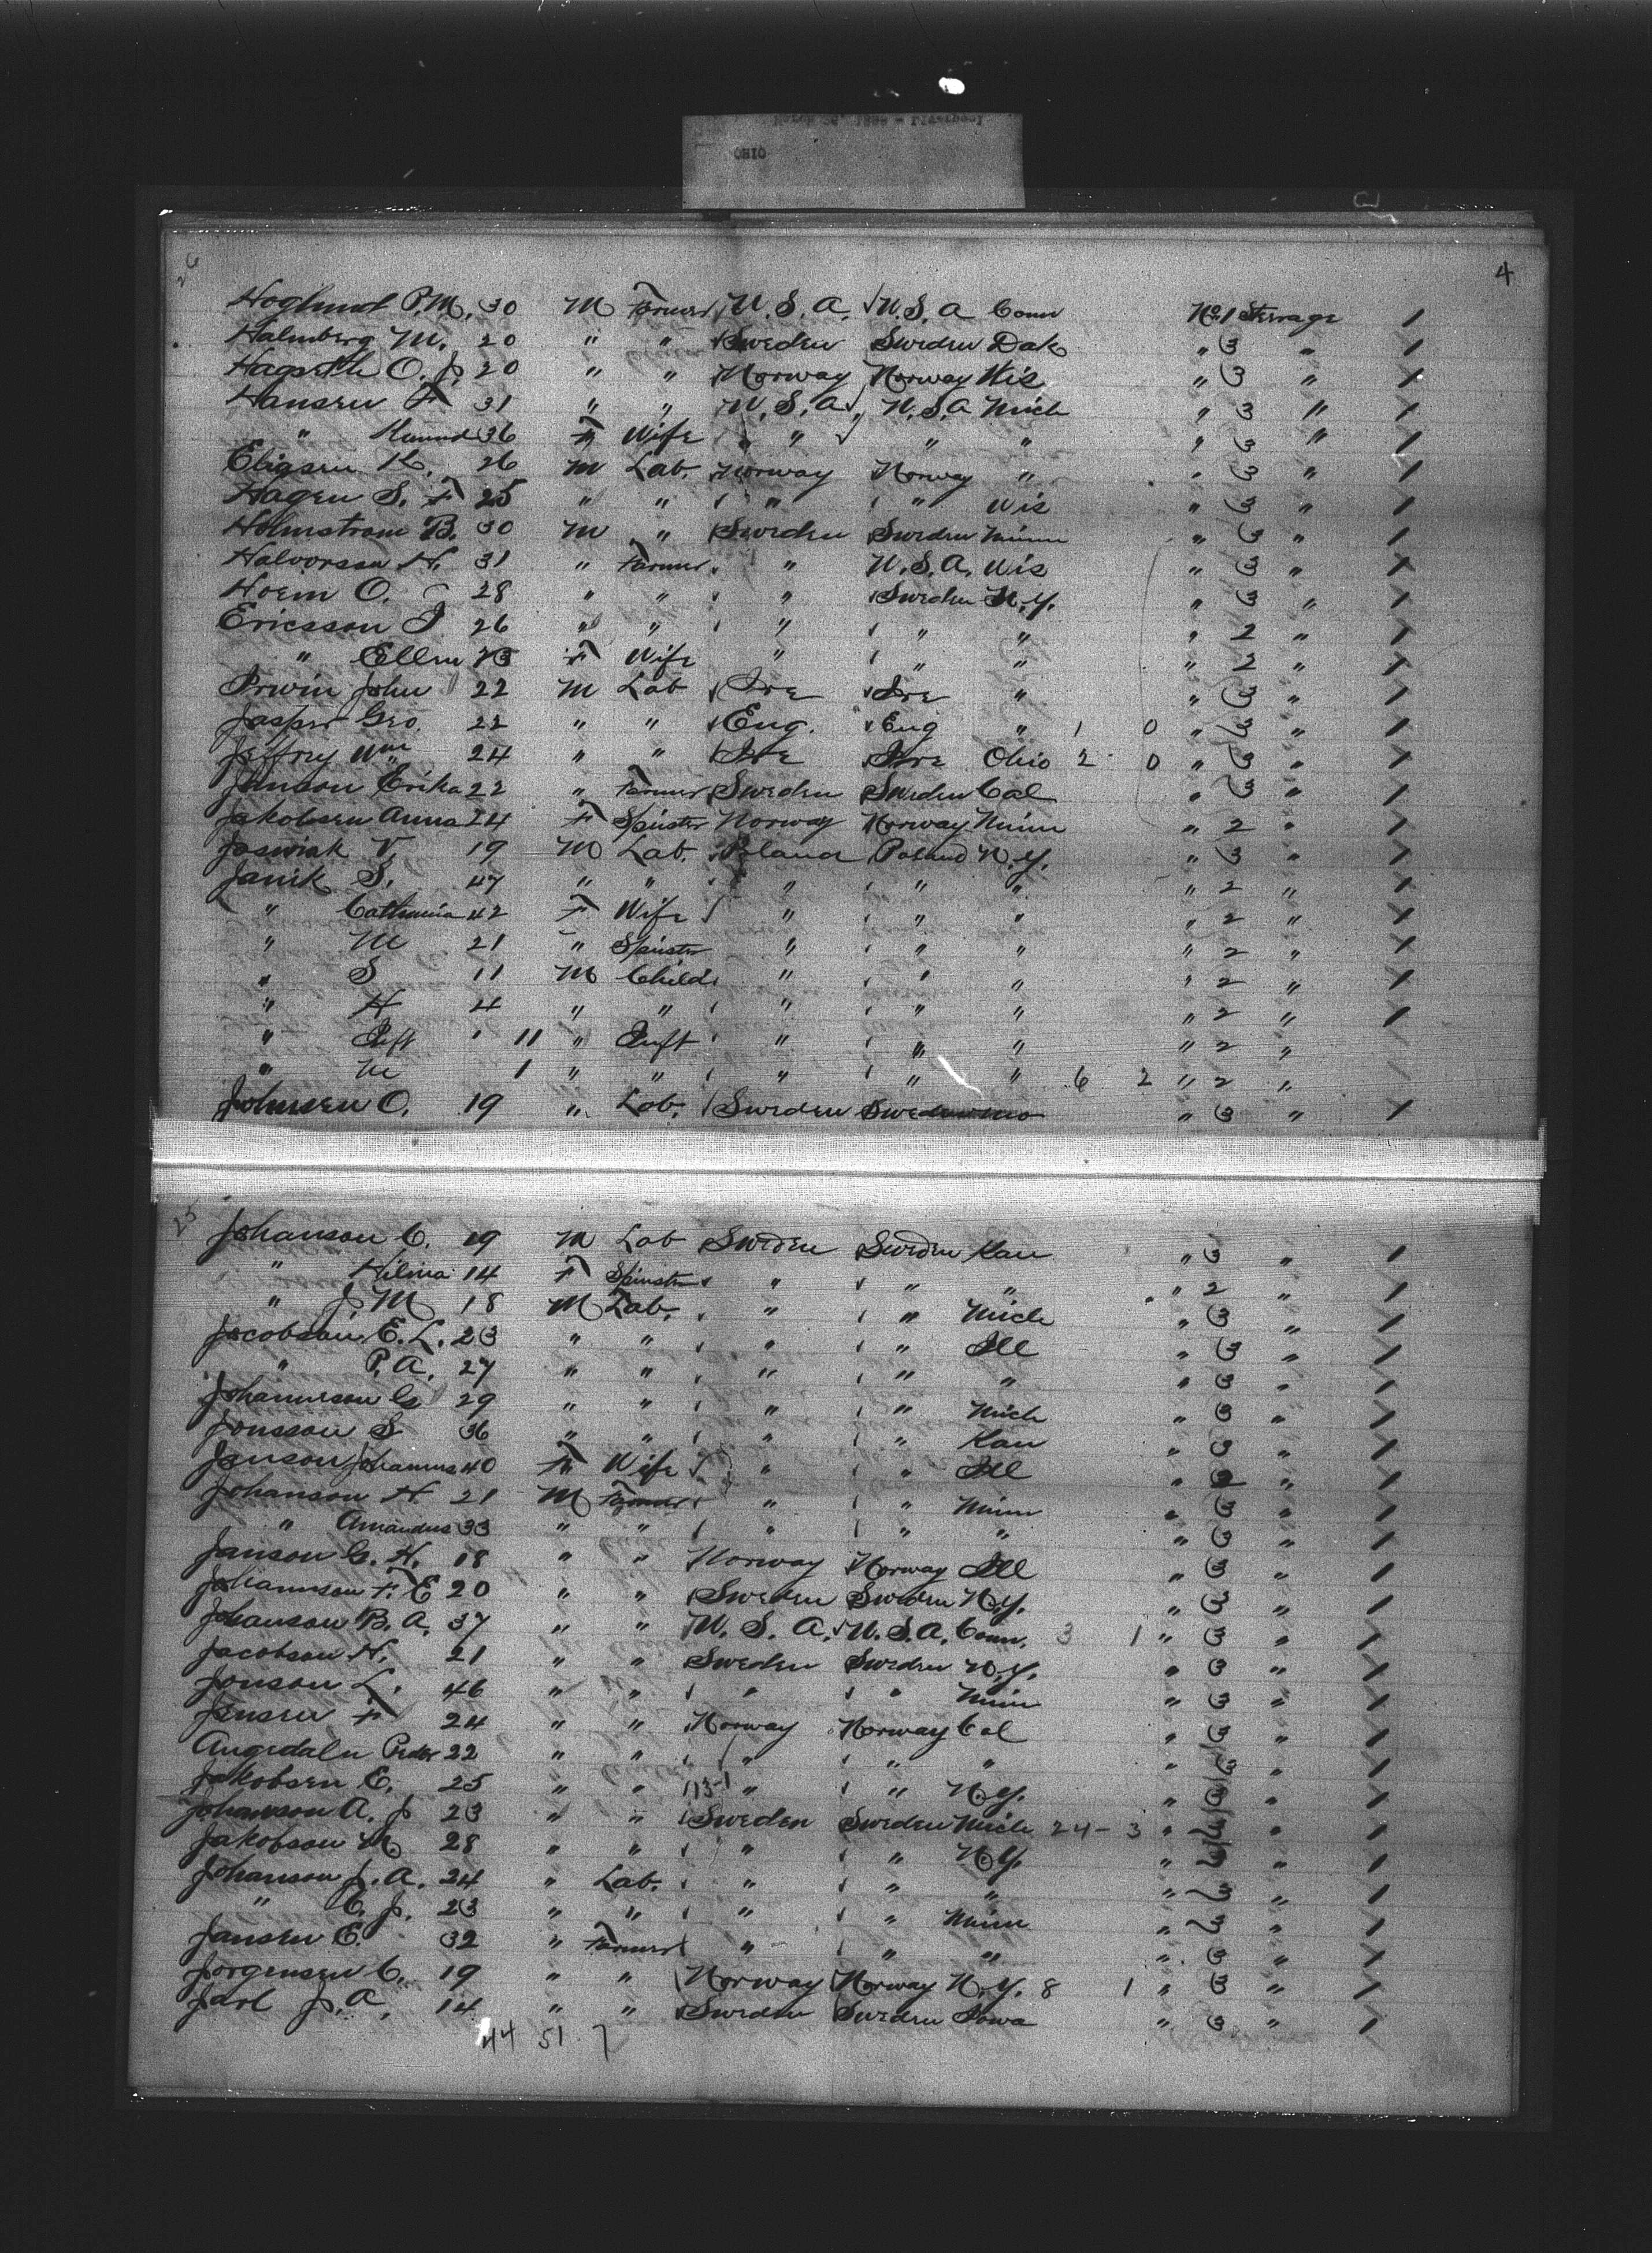 OHIO
4
26
Hoglund P.M. 30 M Farmer U.S.A. U.S.A Conn No 1 Steerage 1
Halmberg M. 20 " " Sweden Sweden Dak " 3 " 1
O. J. 20 " " Norway Norway Wis " 3 " 1
Hansen F 31 " " U.S.A. U.S.A Mich " 3 " 1
" 36 F Wife " " " " 3 " 1
Eliasen K. 26 M Lab. Norway Norway " " 3 " 1
Hagen S. F 25 " " " " Wis " 3 " 1
Holmstrom B. 30 M " Sweden Sweden Minn " 3 " 1
Halvorsen H. 31 " Farmer " U.S.A. Wis " 3 " 1
Hoem O. 28 " " " Sweden N.Y. " 3 " 1
Ericsson J 26 " " " " " " 2 " 1
" Ellen 23 F Wife " " " " 2 " 1
Irwin John 22 M Lab Ire Ire " " 3 " 1
Jasper Geo. 22 " " Eng. Eng " 1 0 " 3 " 1
Jeffrey Wm 24 " " Ire Ire Ohio 2 0 " 3 " 1
Janson Erika 22 " Farmer Sweden Sweden Cal " 3 " 1
Jakobsen Anna 24 F Spinster Norway Norway Minn " 2 " 1
Jaswiak V. 19 M Lab. Poland Poland N.Y. " 3 " 1
Janik S. 47 " " " " " " 2 " 1
" Catherina 42 F Wife " " " " 2 " 1
" M 21 " Spinster " " " " 2 " 1
" S 11 M Child " " " " 2 " 1
" H 4 " " " " " " 2 " 1
" Inft 11 " Inft " " " " 2 "
" M 1 " " " " " 6 2 " 2 "
Johnsen O. 19 " Lab. Sweden " 3 " 1
25
Johanson C. 19 M Lab Sweden Sweden Kan " 3 " 1
" Hilma 14 F Spinster " " " " 2 " 1
" J. M 18 M Lab. " " Mich " 3 " 1
Jacobson E. L. 23 " " " " Ill " 3 " 1
" P. A. 27 " " " " " " 3 " 1
Johanneson G 29 " " " " Mich " 3 " 1
Jonsson S 36 " " " " Kan " 3 " 1
Janson 40 F Wife " " Ill " 2 " 1
Johanson H 21 M Farmer " " Minn " 3 " 1
" Amandus 33 " " " " " " 3 " 1
Janson G. H. 18 " " Norway Norway Ill " 3 " 1
Johannson F. E 20 " " Sweden Sweden N.Y. " 3 " 1
Johanson B. A. 37 " " U.S.A. U.S.A. Conn. 3 1 " 3 " 1
Jacobson H. 21 " " Sweden Sweden N.Y. " 3 " 1
Jonson L. 46 " " " " Minn " 3 " 1
Jensen F 24 " " Norway Norway Cal " 3 " 1
Angedalen Peder 22 " " " " " " 3 " 1
Jakobsen E. 25 " " 113-1 " " N.Y. " 3 " 1
Johanson A. J 23 " " Sweden Sweden Mich 24-3 " 3 " 1
Jakobson M 28 " " " " N.Y. " 3 " 1
Johanson J. A. 24 " Lab. " " " " 3 " 1
" C. J. 23 " " " " Minn " 3 " 1
Jansen E. 32 " Farmer " " " " 3 " 1
Jorgensen C. 19 " " Norway Norway N.Y. 8 1 " 3 " 1
Jarl J. A. 14 " " Sweden Sweden Iowa " 3 " 1
44 51 7